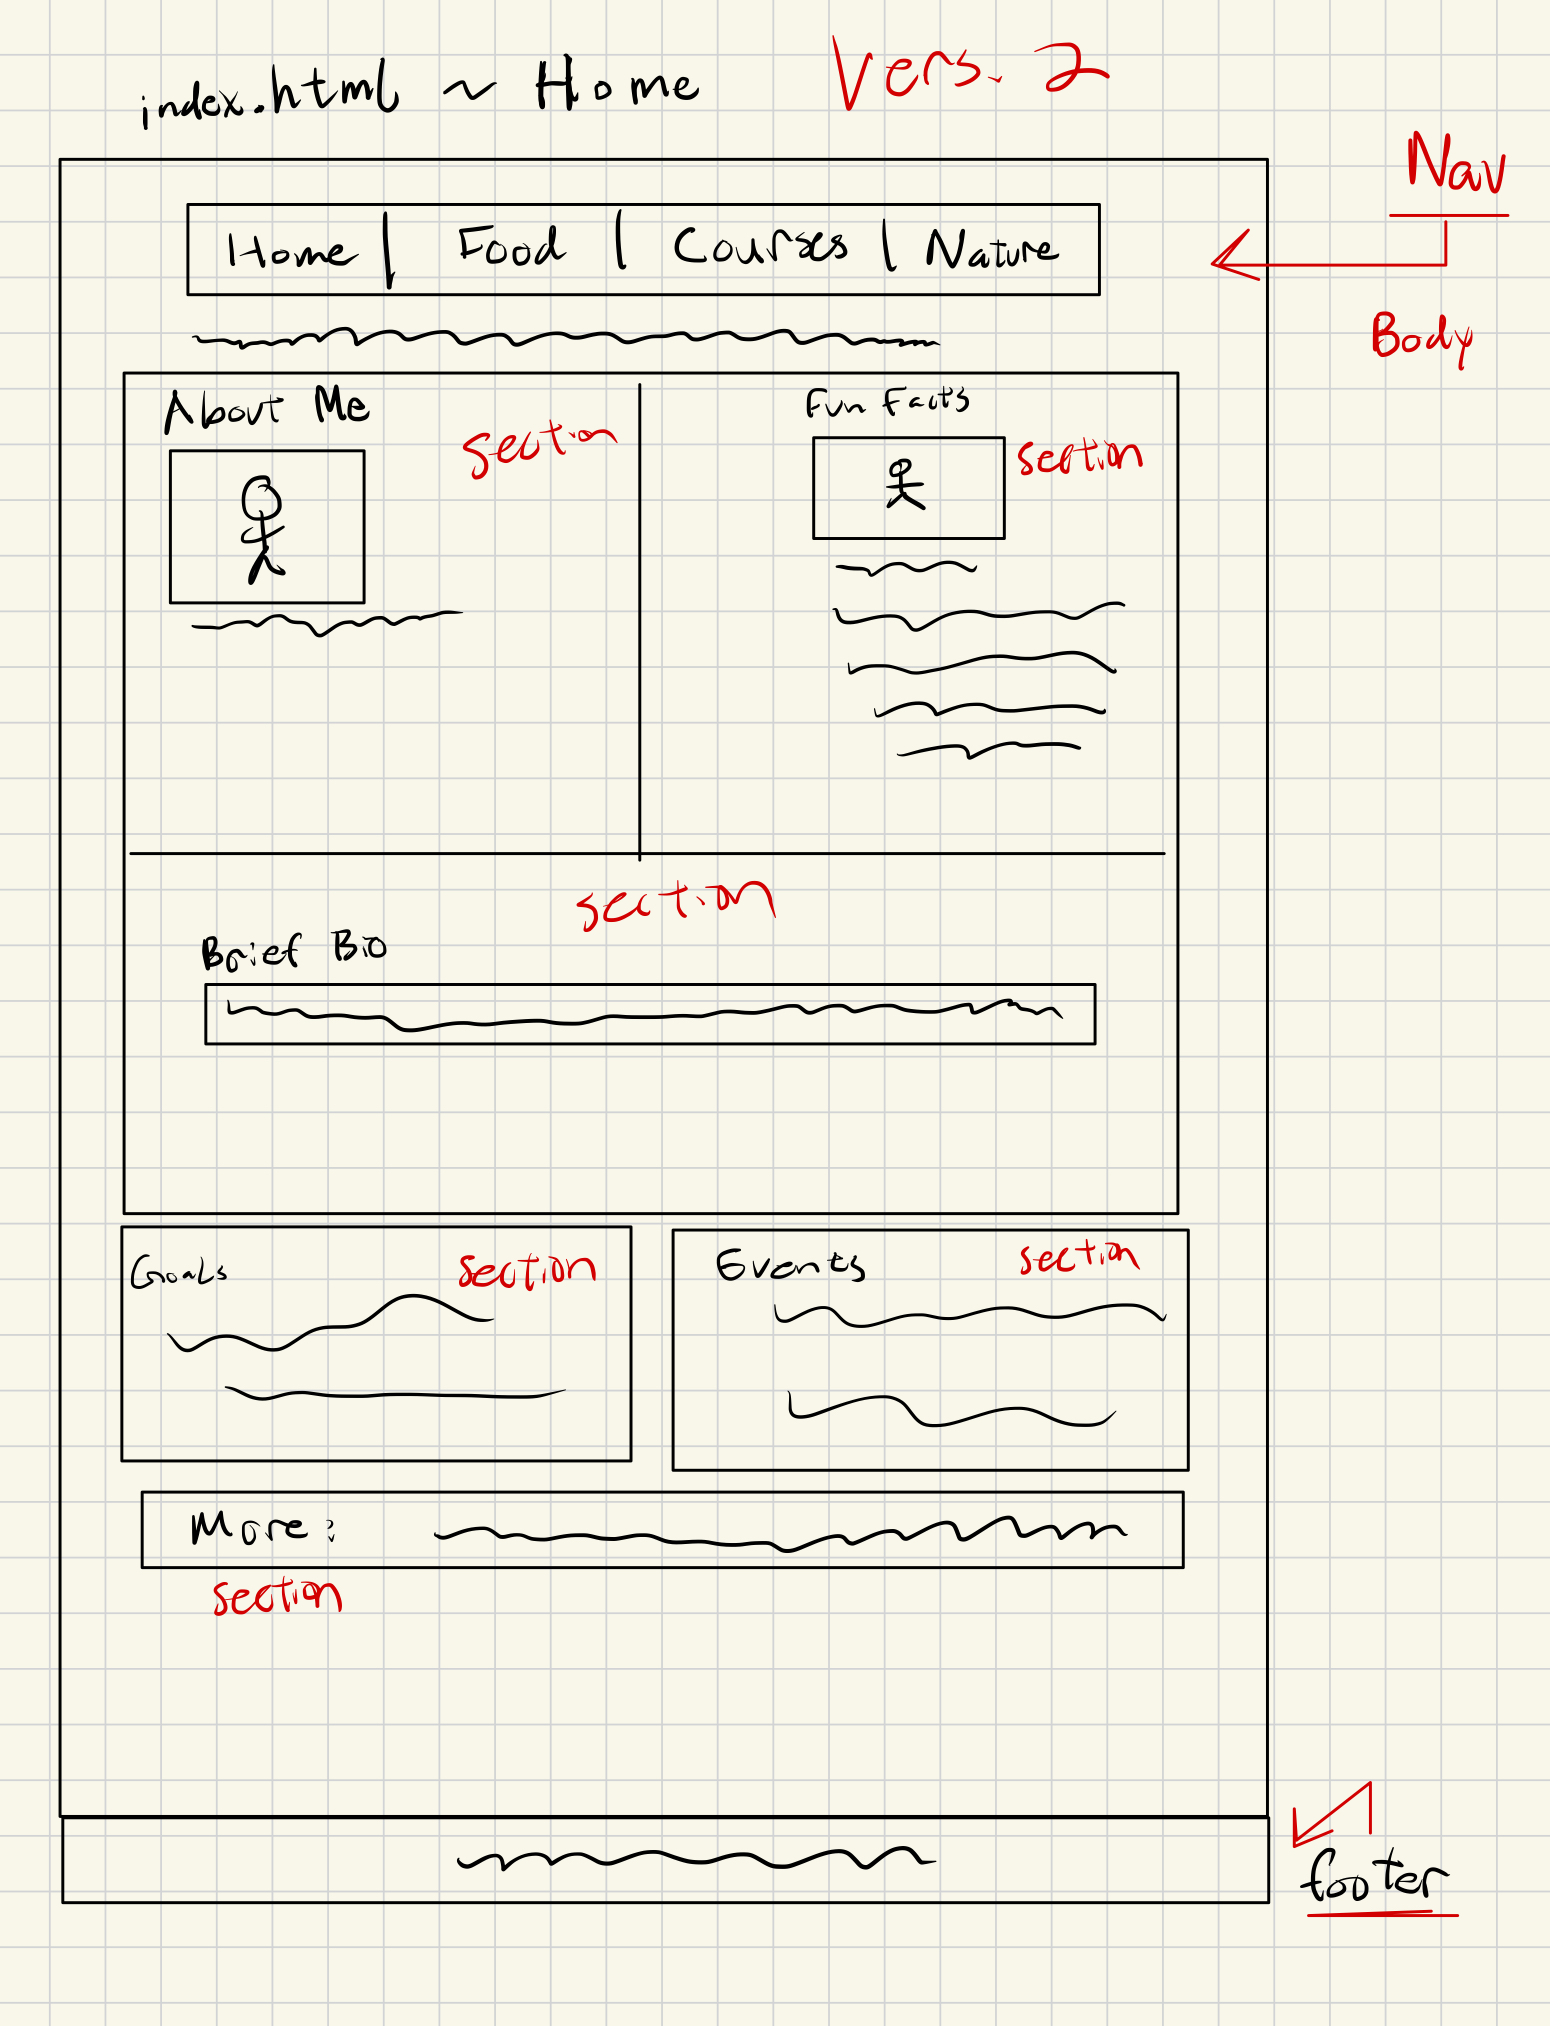 index.html ~ Home
Vers. 2
Nav
Home | Food | Courses | Nature
Body
About Me
section
Fun Facts
section
section
Brief Bio
Goals
section
Events
section
More:
section
footer